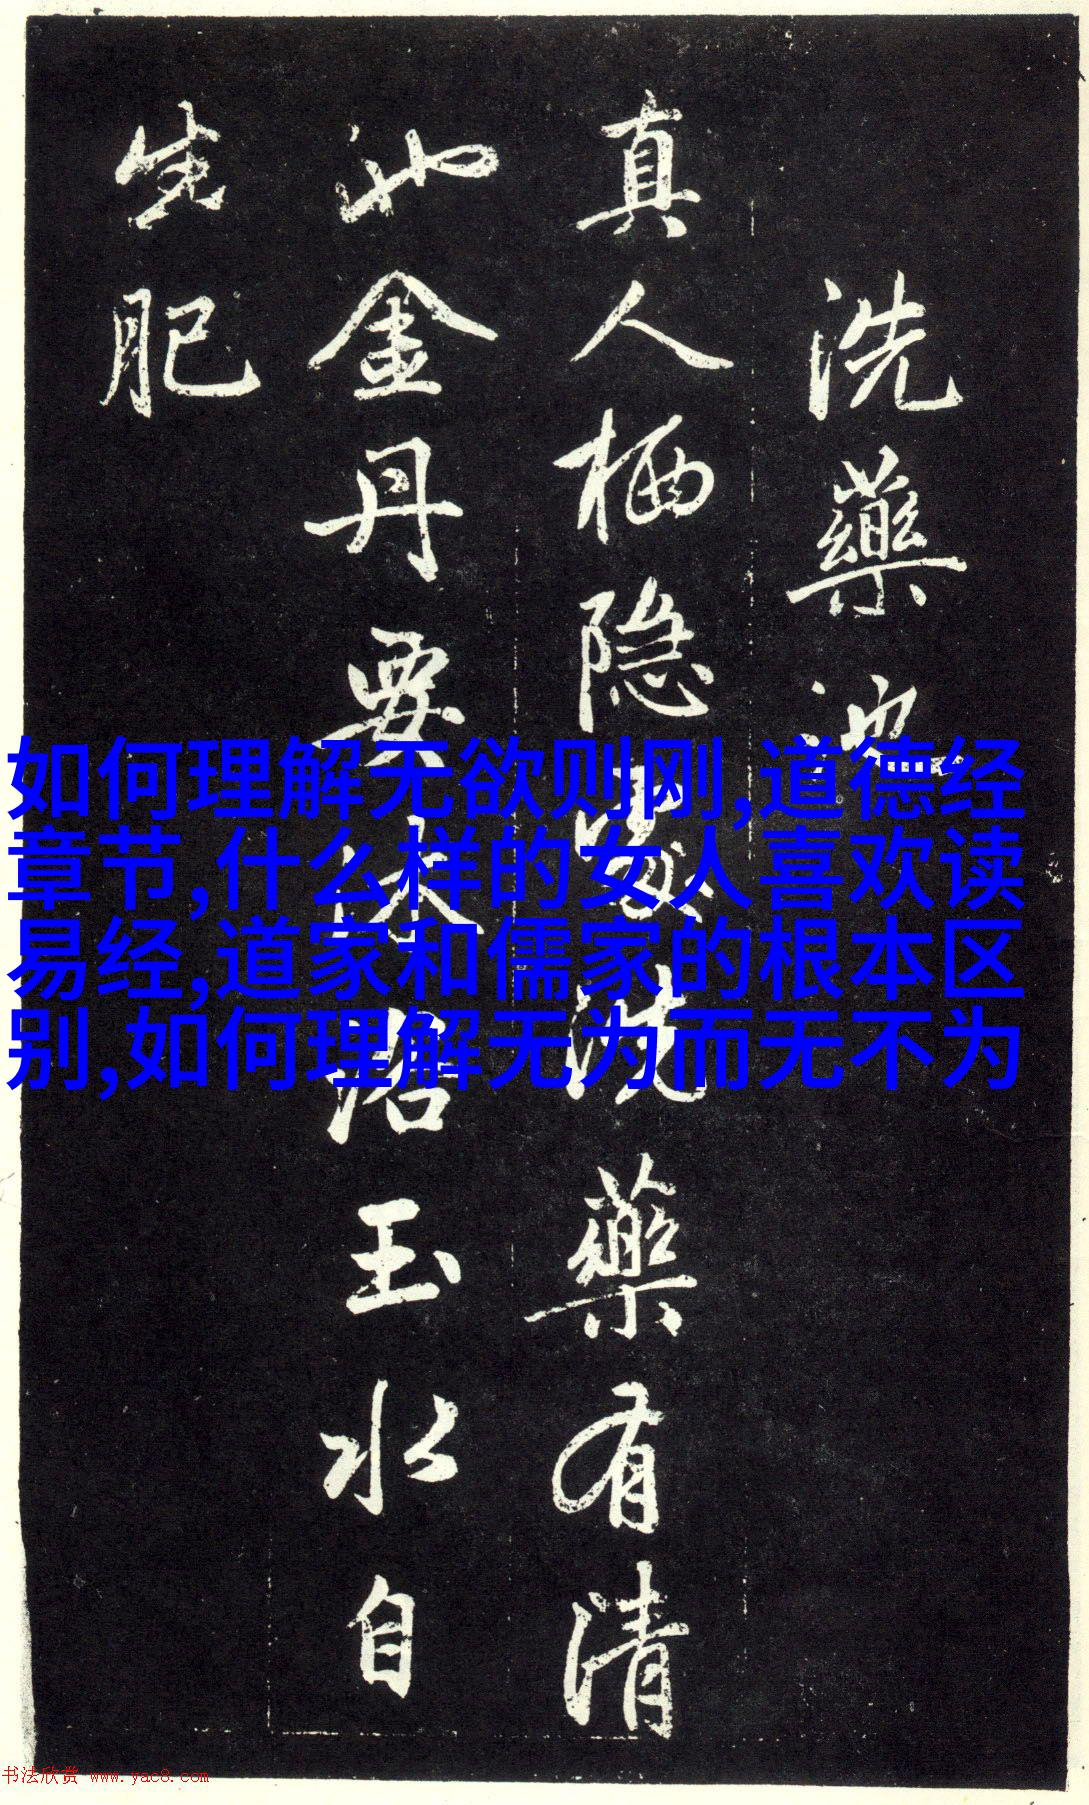 洗藥池
真人栖隐處洗藥有清
池金丹要沐浴玉水自
生肥
如何理解无欲则刚,道德经
章节,什么样的女人喜欢读
易经,道家和儒家的根本区
别,如何理解无为而无不为
书法欣赏 www.yac8.com